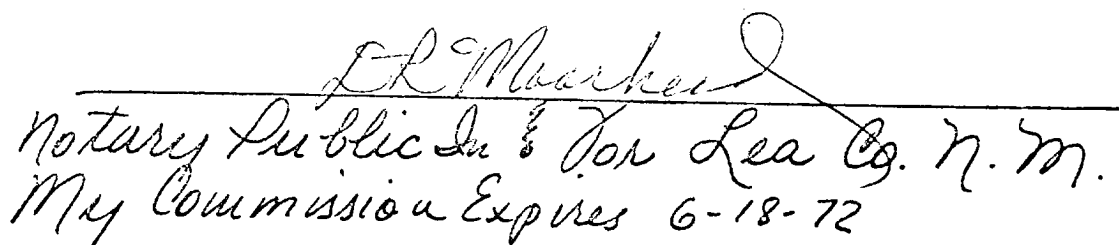 DR Moorhead
Notary Public In & For Lea Co. N. M.
My Commission Expires 6-18-72